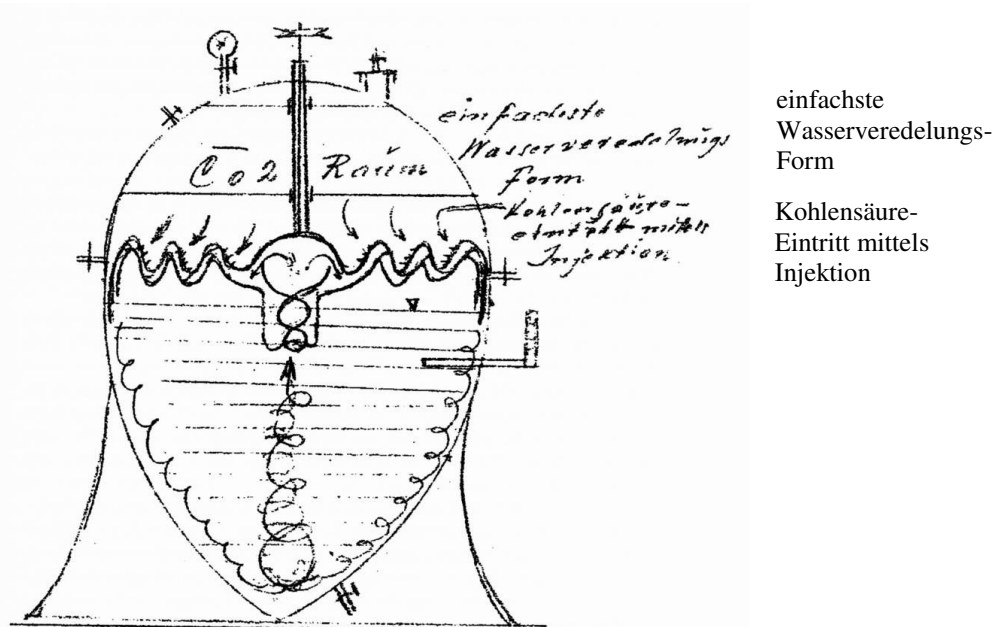 einfachste
Wasserveredelungs
Form
C̅o2 Raum
Kohlensäure-
eintritt mittels
Injektion
einfachste
Wasserveredelungs-
Form
Kohlensäure-
Eintritt mittels
Injektion